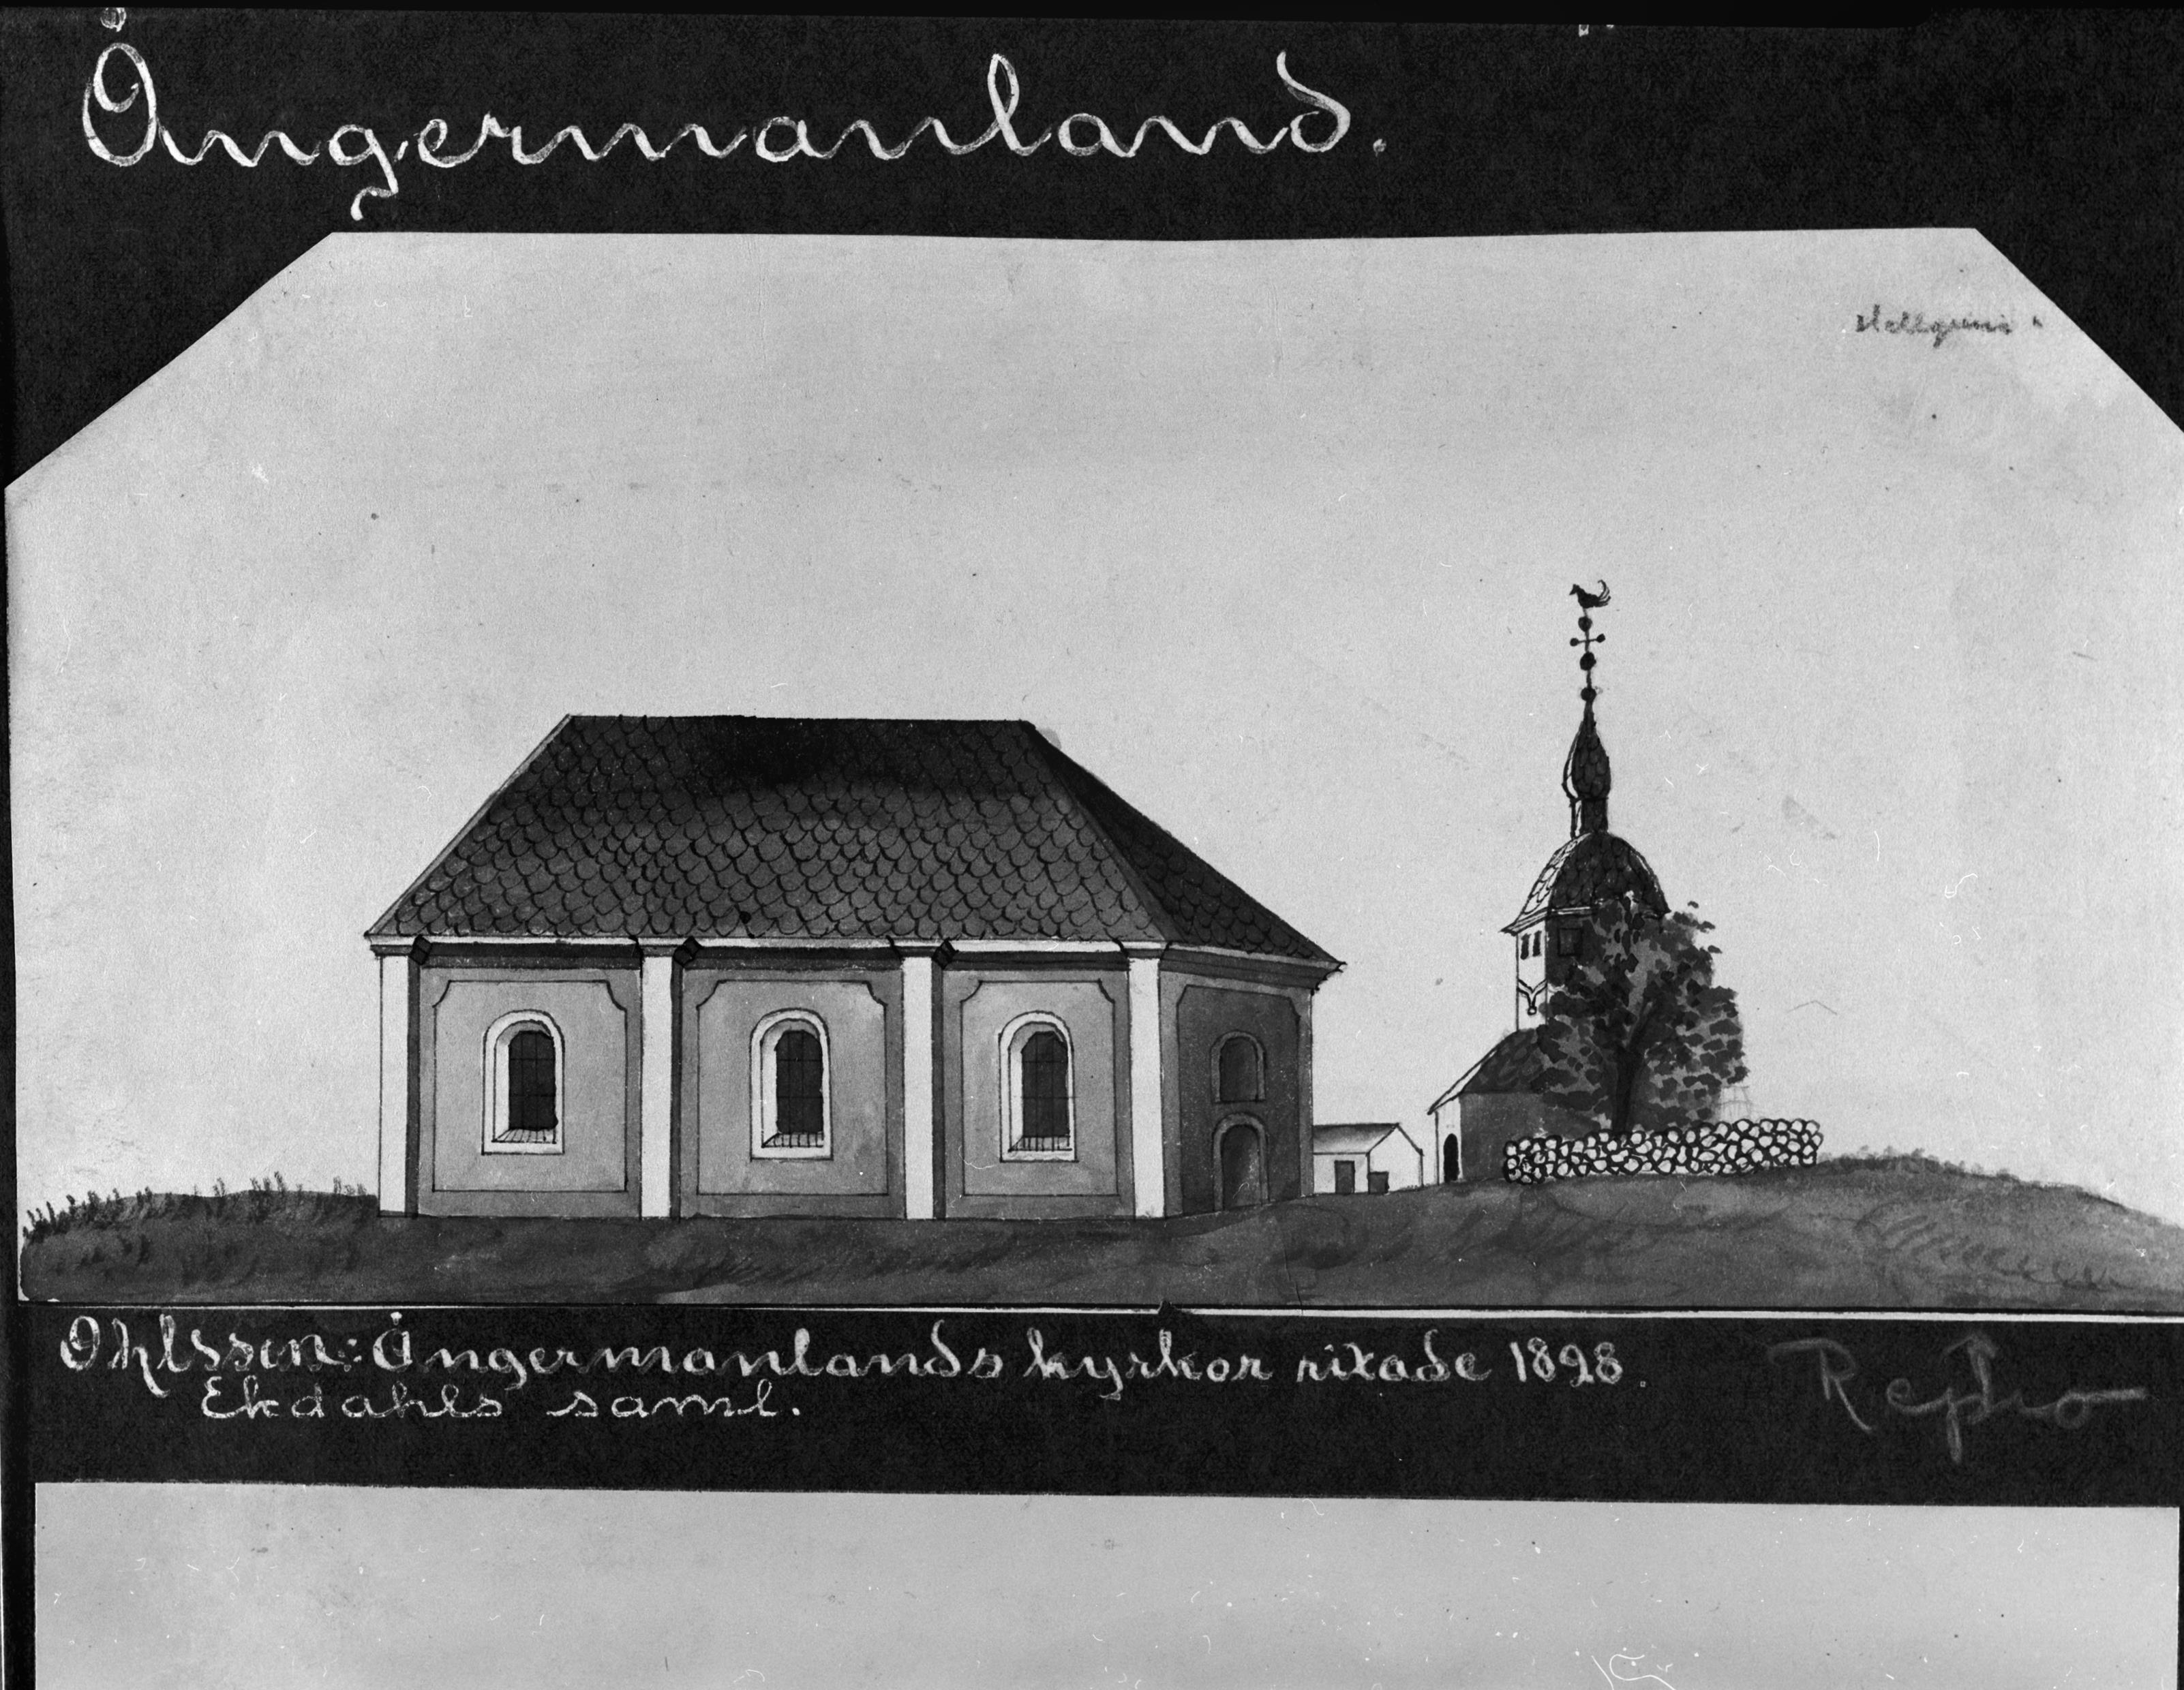 Ångermanland.
Ohlsson: Ångermanlands kyrkor ritade 1828.
Ekdahls saml.
Repro